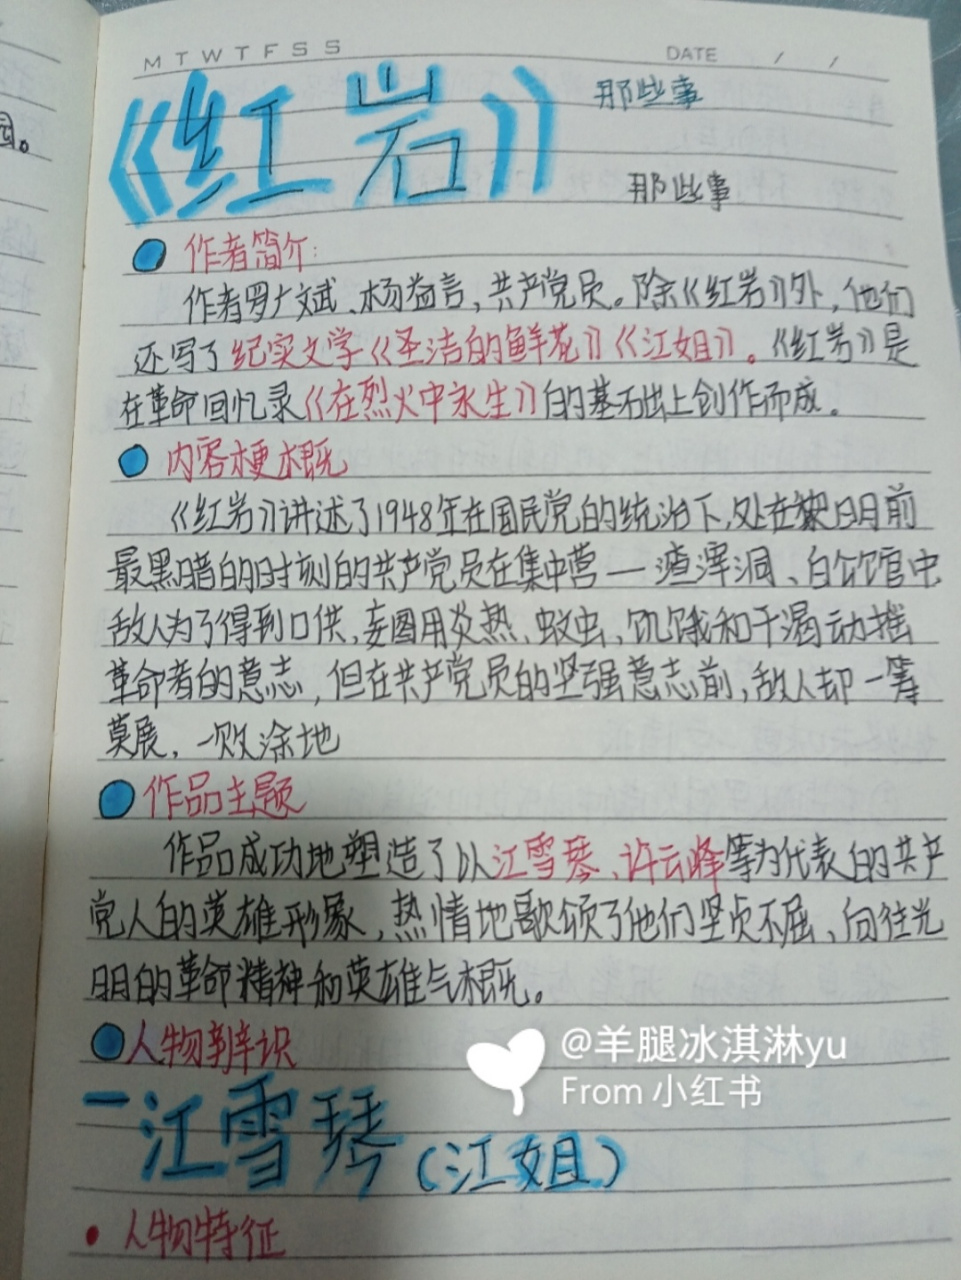 园。
M T W T F S S
DATE / /
《红岩》
那些事
那些事
作者简介:
作者罗广斌、杨益言,共产党员。除《红岩》外,他们
还写了纪实文学《圣洁的鲜花》《江姐》。《红岩》是
在革命回忆录《在烈火中永生》的基础上创作而成。
内容梗概
《红岩》讲述了1948年在国民党的统治下,处在黎明前
最黑暗的时刻的共产党员在集中营—渣滓洞、白公馆中
敌人为了得到口供,妄图用炎热、蚊虫、饥饿和干渴动摇
革命者的意志,但在共产党员的坚强意志前,敌人却一筹
莫展,一败涂地
作品主题
作品成功地塑造了以江雪琴、许云峰等为代表的共产
党人的英雄形象,热情地歌颂了他们坚贞不屈、向往光
明的革命精神和英雄气概。
人物辨识
@羊腿冰淇淋yu
From 小红书
一江雪琴(江姐)
人物特征